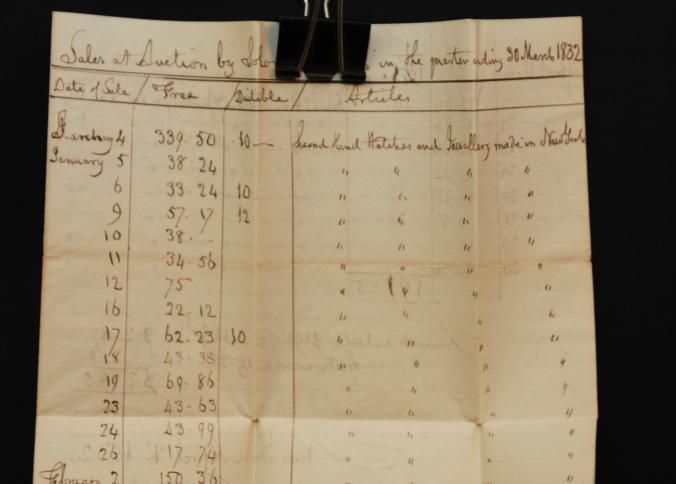 Sales at Auction by Solo in the quarter ending 30 March 1832
Date of Sale / Free / Dutiable / Articles
4 339.50 10 — Second Hand Watches and Jewellery made in New York
January 5 38.24 " " " "
6 33.24 10 " " " "
9 57.17 12 " " " "
10 38.- " " " "
11 34.56 " " " "
12 75 " " " "
16 22.12 " " " "
17 62.23 10 " " " "
18 43.38 " " " "
19 69.86 " " " "
23 43-63 " " " "
24 43-99 " " " "
26 17.74 " " " "
February 2 150 36 " " " "